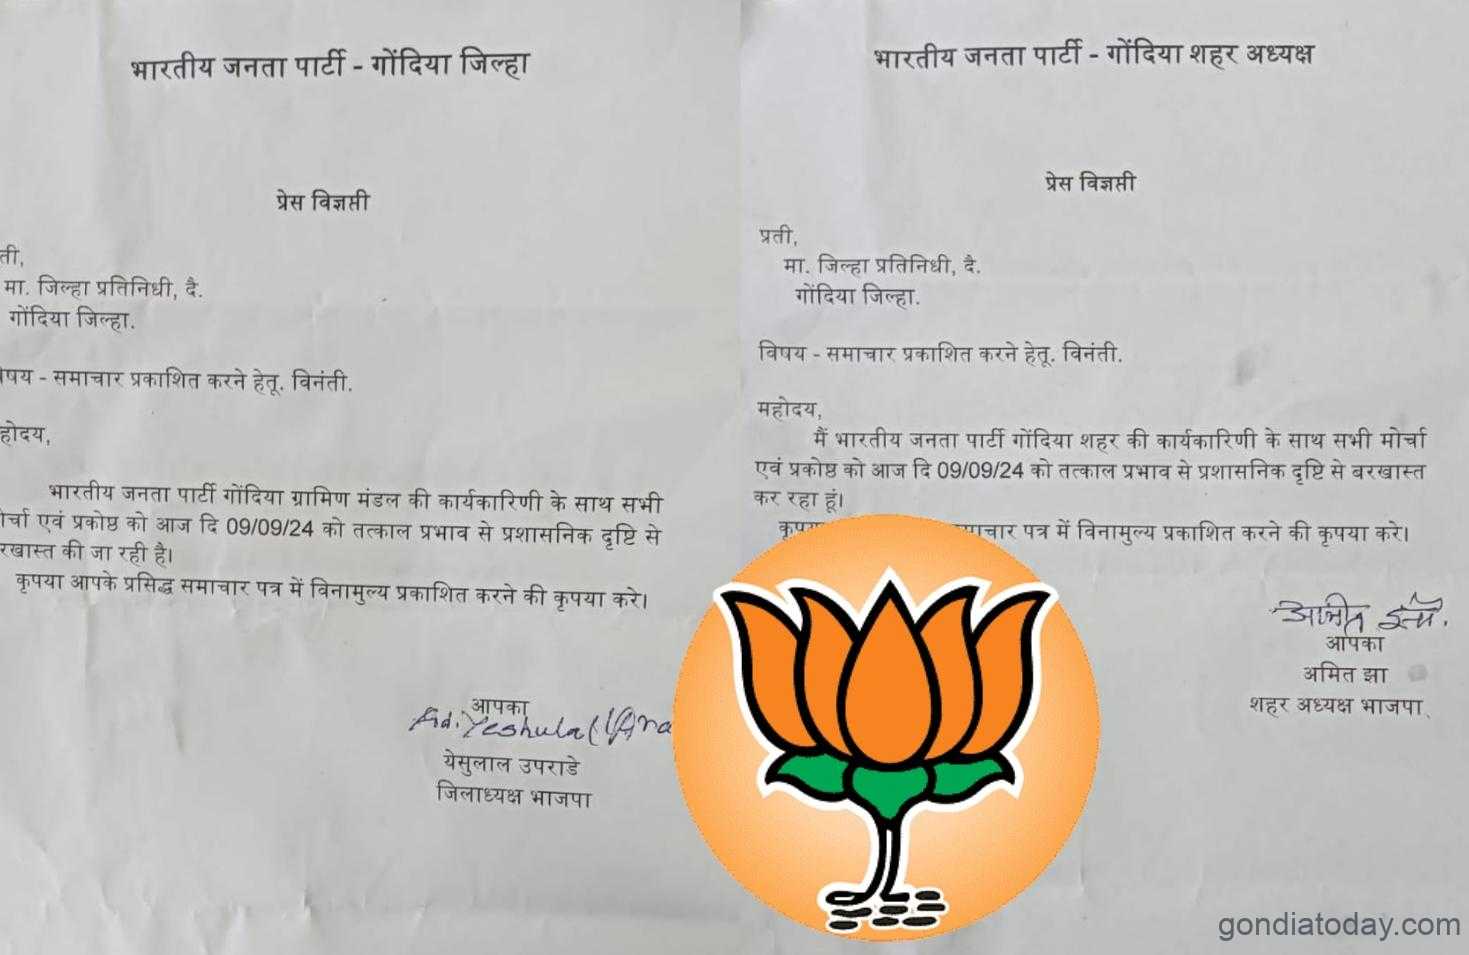 भारतीय जनता पार्टी - गोंदिया जिल्हा
प्रेस विज्ञप्ती
ती,
मा. जिल्हा प्रतिनिधी, दै.
गोंदिया जिल्हा.
षय - समाचार प्रकाशित करने हेतू. विनंती.
होदय,
भारतीय जनता पार्टी गोंदिया ग्रामिण मंडल की कार्यकारिणी के साथ सभी
ोर्चा एवं प्रकोष्ठ को आज दि 09/09/24 को तत्काल प्रभाव से प्रशासनिक दृष्टि से
रखास्त की जा रही है।
कृपया आपके प्रसिद्ध समाचार पत्र में विनामुल्य प्रकाशित करने की कृपया करे।
आपका
येसुलाल उपराडे
जिलाध्यक्ष भाजपा
भारतीय जनता पार्टी - गोंदिया शहर अध्यक्ष
प्रेस विज्ञप्ती
प्रती,
मा. जिल्हा प्रतिनिधी, दै.
गोंदिया जिल्हा.
विषय - समाचार प्रकाशित करने हेतू. विनंती.
महोदय,
मैं भारतीय जनता पार्टी गोंदिया शहर की कार्यकारिणी के साथ सभी मोर्चा
एवं प्रकोष्ठ को आज दि 09/09/24 को तत्काल प्रभाव से प्रशासनिक दृष्टि से बरखास्त
कर रहा हूं।
पत्र में विनामुल्य प्रकाशित करने की कृपया करे।
आपका
अमित झा
शहर अध्यक्ष भाजपा.
gondiatoday.com